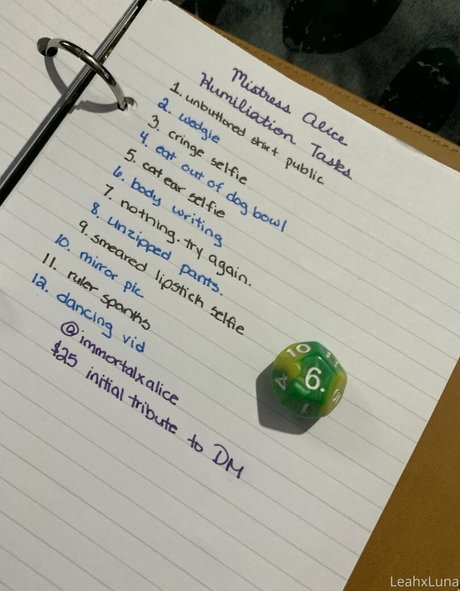 Mistress Alice
Humiliation Tasks
1. unbuttoned shirt public
2. wedgie
3. cringe selfie
4. eat out of dog bowl
5. cat ear selfie
6. body writing
7. nothing. try again.
8. unzipped pants.
9. smeared lipstick selfie
10. mirror pic
11. ruler spanks
12. dancing vid
@immortalxalice
$25 initial tribute to DM
10
6.
1
LeahxLuna